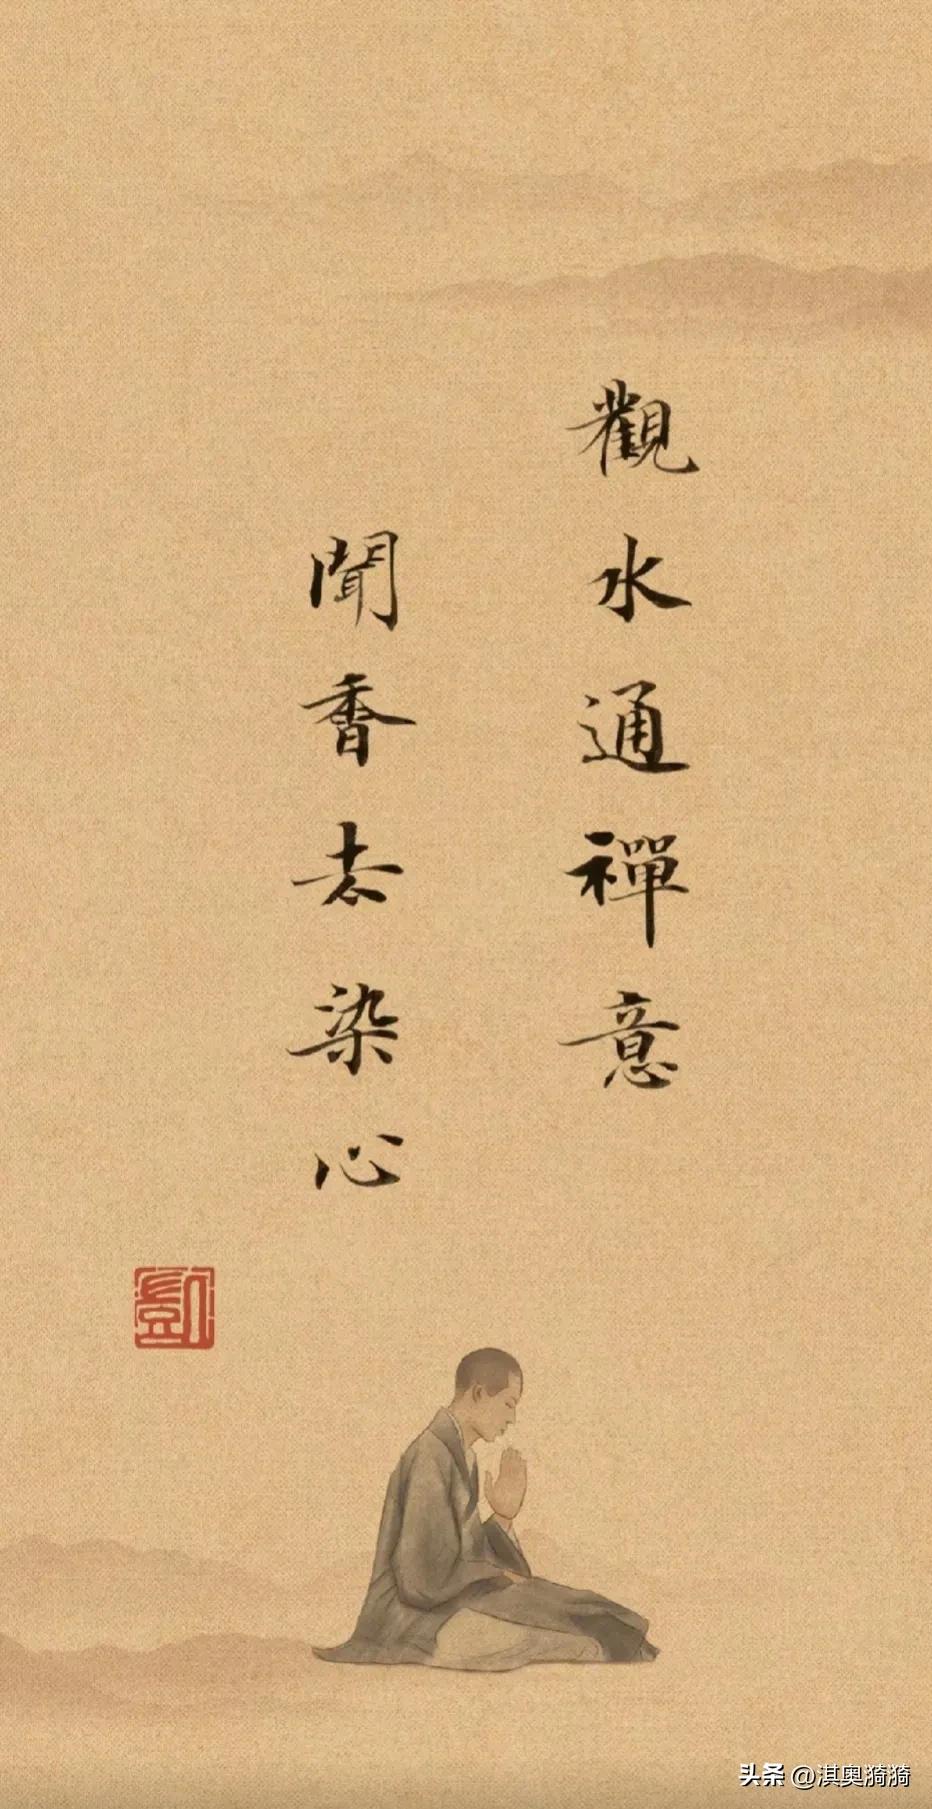 觀水通禪意
聞香去染心
头条 @淇奥猗猗